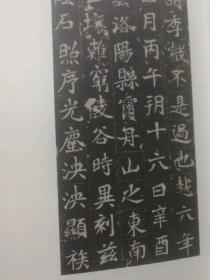 李毅不是過也越六年
月丙午朔十六日辛酉
洛陽縣覆舟山之東南
壤雖窮陵谷時異刻茲
石照序光塵泱泱顯族